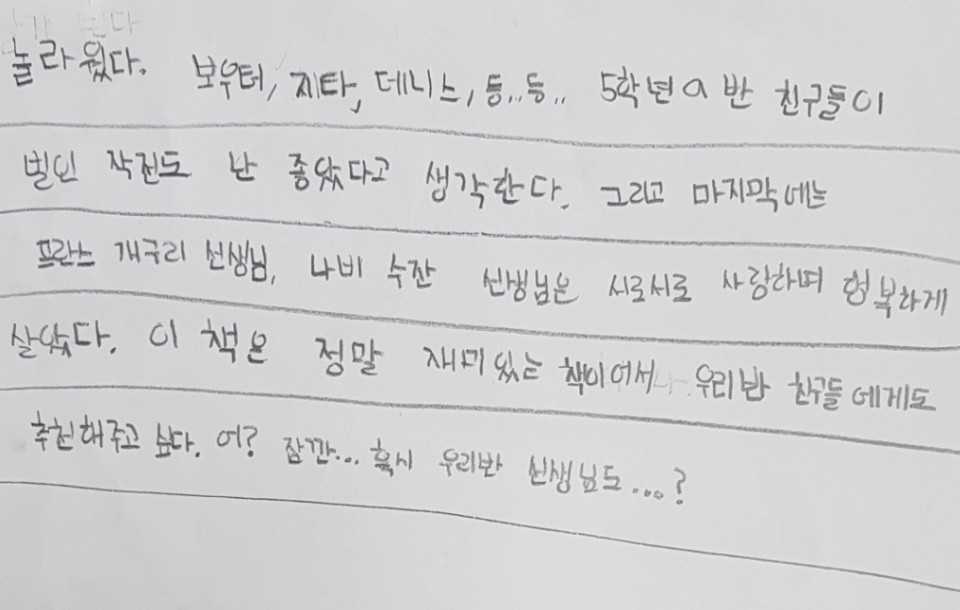 놀라웠다. 보우터, 지타, 데니스, 등..등.. 5학년 a 반 친구들이
벌인 작전도 난 좋았다고 생각한다. 그리고 마지막에는
프란스 개구리 선생님, 나비 수잔 선생님은 서로서로 사랑하며 행복하게
살았다. 이 책은 정말 재미있는 책이어서 우리반 친구들에게도
추천해주고 싶다. 어? 잠깐... 혹시 우리반 선생님도...?